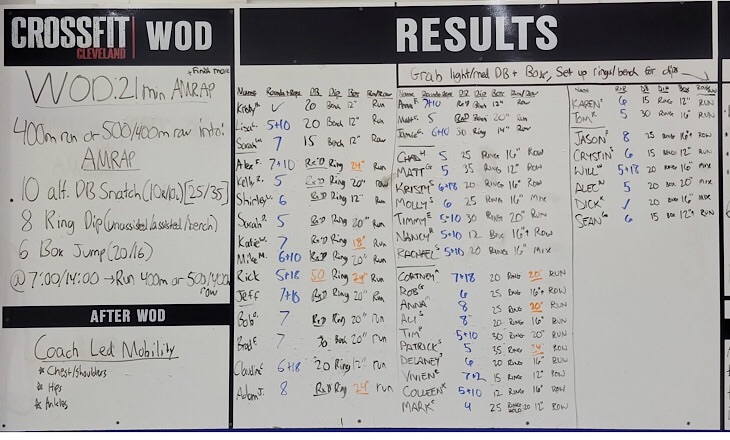 CROSSFIT
CLEVELAND
WOD
WOD: 21 min AMRAP
400m run or 500/400m row into:
AMRAP
10 alt. DB Snatch (10x10) [25/35]
8 Ring Dip (unassisted/assisted/bench)
6 Box Jump (20/16)
@ 7:00/14:00 → Run 400m or 500/400m
row
AFTER WOD
Coach Led Mobility
* Chest/shoulders
* Hips
* Ankles
RESULTS
Grab light/med DB + Box, Set up rings/bench for dips
Name Rounds+Reps DB Dip Box Run/Row
Kirsty ✓ 20 Bench 12" Run
5+10 20 Bench 12" Run
Sarah 7 15 Bench 12" Row
Alex F. 7+10 Rx'D Ring 24" Run
Kelly R. 5 Rx'D Ring 20" row
Shirley 6 Rx'D Ring 12" Run
Sarah R. 5 Rx'D Ring 20" Run
Kate W. 7 Rx'D Ring 18" Run
Mike M. 6+10 Rx'D Ring 20" Run
Rick 5+18 50 Ring 24" Run
Jeff 7+15 Rx'D Ring 20" Run
Bob 7 Rx'D Ring 20" Run
Brad 7 30 Bench 20" run
Claudia 6+18 20 Ring 12" run
Adam J. 8 Rx'D Ring 24" run
Name Rounds+Reps DB Dip Box Run/Row
Anna 7+10 Rx'D Bench 12" Row
5 Rx'D Bench 20" Run
6+10 30 Ring 14" Row
CHAD H 5 25 RING 16" ROW
MATT G 5 35 RING 12" ROW
KRISTM 6+18 20 RING 16" ROW
MOLLY S 6 25 RING 16" MIX
TIMMY E 5+10 30 RING 20" RUN
NANCY R 5+10 12 BOX 16"+ ROW
RACHAEL S 5+10 20 RING 16" MIX
CORTNEY 7+18 20 RING 20" RUN
ROB G 6 25 RING 16"+ ROW
ANNA 8 25 RING 20" RUN
ALI S 8 20 RING 16" RUN
TIM 5+10 30 RING 20" RUN
PATRICK S 5 35 RING 24" ROW
DELANEY 6 20 RING 16" RUN
VIVIEN 7+2 15 RING 12" ROW
COLLEEN K 5+10 12 RING 16" ROW
MARK 4 25 RING 12" ROW
NAME R+R DB DIP BOX RUN/ROW
KAREN 6 15 RING 12" RUN
TOM 5 30 RING 16" RUN
JASON 8 25 RING 16"+ ROW
CRYSTIN 6 15 RING 12" RUN
WILL 5+18 20 RING 16" MIX
ALEC 5 20 BOX 20" MIX
DICK ✓ 20 BOX 16" MIX
SEAN 6 15 BOX 12"+ RUN